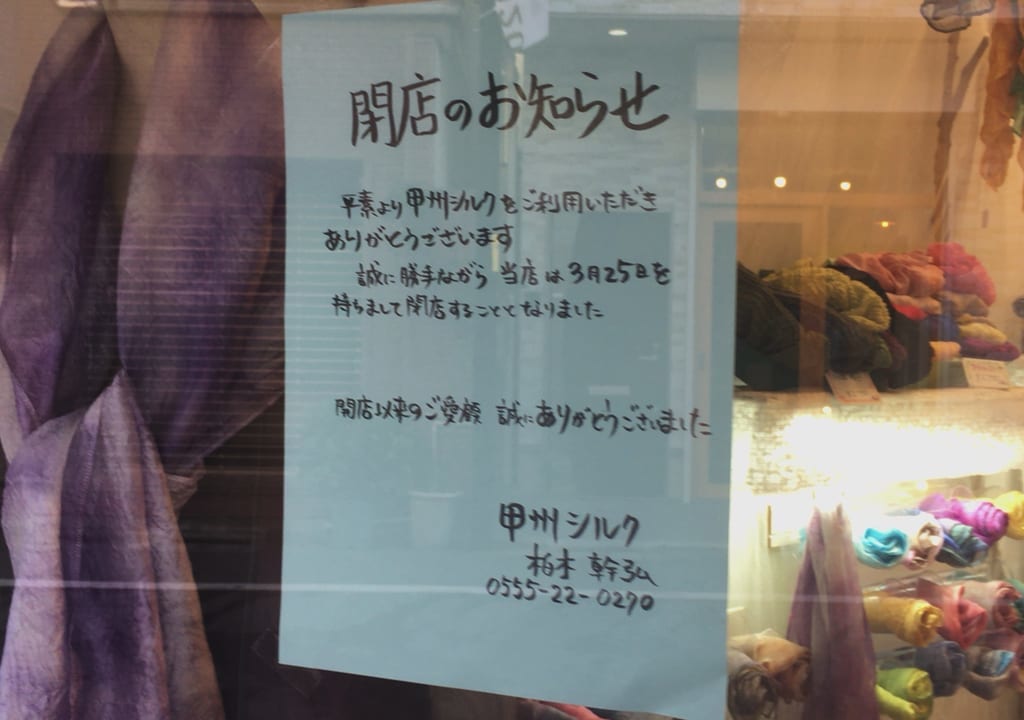 閉店のお知らせ
平素より甲州シルクをご利用いただき
ありがとうございます
誠に勝手ながら 当店は3月25日を
持ちまして閉店することとなりました
開店以来のご愛顧 誠にありがとうございました
甲州シルク
柏木 幹弘
0555-22-0270